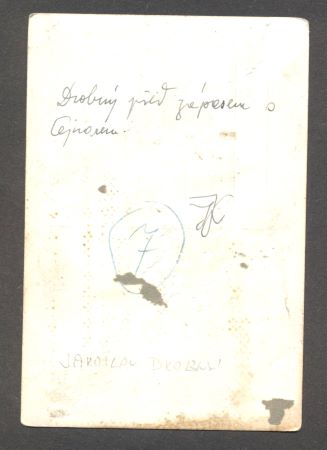 Drobný před zápasem s
Cejnarem.
JK
7
JAROSLAV DROBNÝ